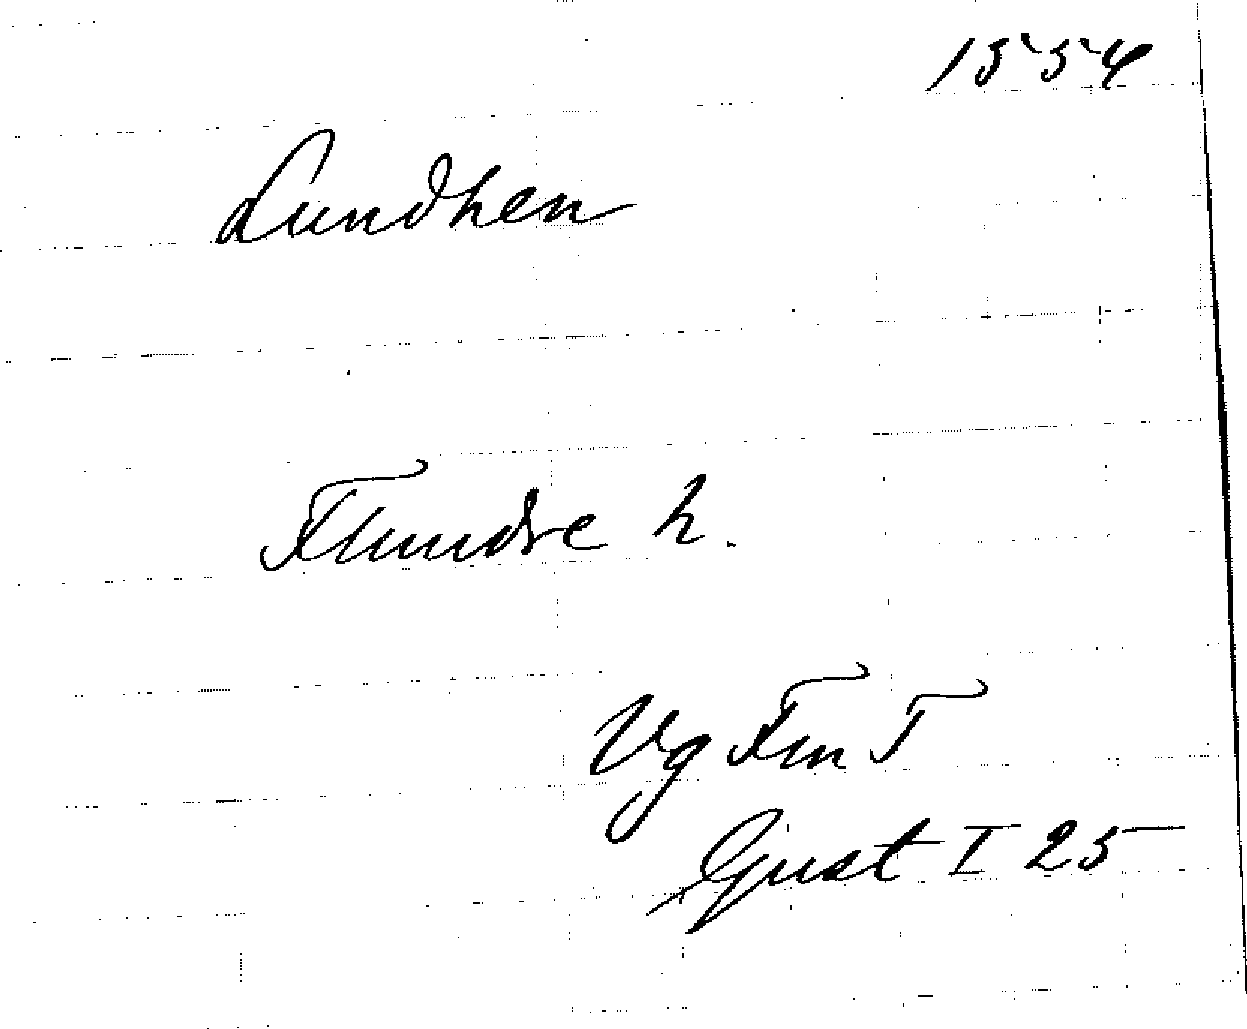 1554
Lundhen
Flundre h.
Vg Fm T
Gust I 25